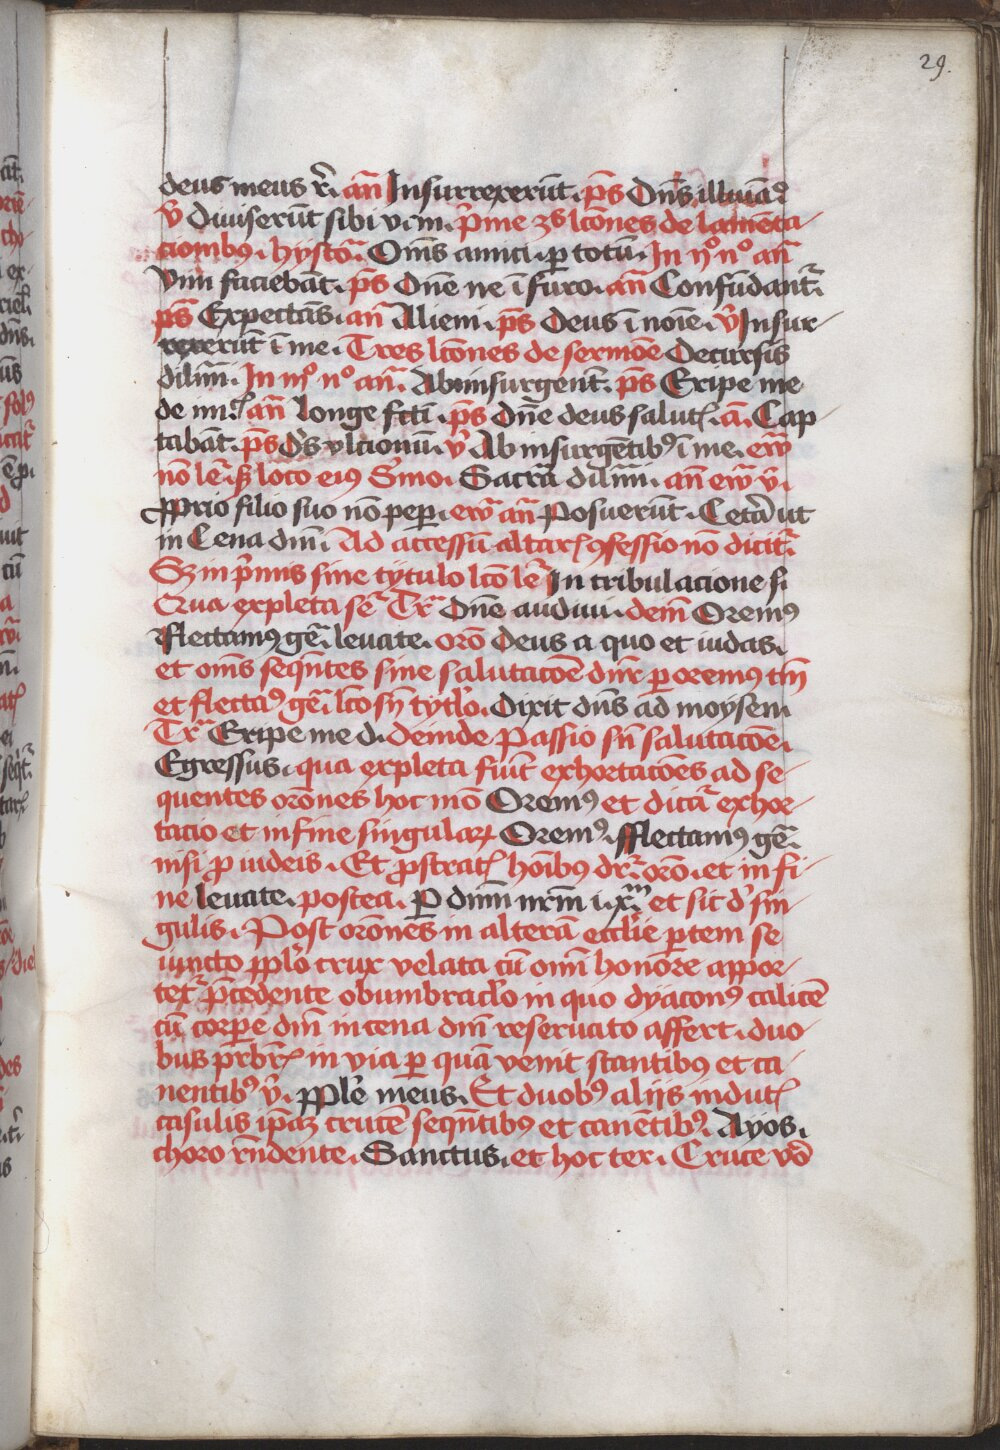 29.
deus meus r̃. añ Insurrexerũt. p̃s Dñs illuiãꝰ
v̉ Diuiserũt sibi v. m. p̃me ʒs lc̃ones de lamẽta-
ciõibꝰ. hystor̃. Om̃s amici. ꝑ totũ. In ijº nº añ
Vim faciebãt. p̃s Dñe ne ĩ furo. añ Confũdant᷑.
p̃s Expectãs. añ Alieni. p̃s Deus ĩ noĩe. v̉ Insur-
rexerũt ĩ me. Tres lc̃ones de sermõe Decursis
dilim̃. In iijº nº añ. Ab insurgent. p̃s Eripe me
de imi. añ Longe fc̃ti. p̃s Dñe deus salut. a. Cap
tabãt. p̃s Ds̉ vlcionũ. v̉ Ab insurgẽtibꝰ ĩ me. ew̃
nõ le. ꝫ loco eiꝰ Ẽmo. Sacrã dilim̃. añ ew̃. v̉.
ꝓprio filio suo nõ peꝑ. ew̃ añ Posuerũt. Cetã ut
in Cena dm̃. Ad accessũ altar ꝯfessio nõ dicit᷑.
Sꝫ in p̃mis sine tytulo lc̃o le᷑ In tribulacione s.
Qua expleta se᷑ Tr̃ Dñe audiui. deiñ Oremꝰ
Flectamꝰ ge᷑. leuate. orõ Deus a quo et iudas.
et om̃s seqñtes sine salutacõe dnr̃ ꝑ oremꝰ tm̃
et flectaꝰ ge᷑. lc̃o sñ tytlo. Dixit dñs ad moysem
Tr̃ Eripe me d. deinde Passio sñ salutacõe.
Egressus. qua expleta fiũt exhortacões ad se-
quentes orões hoc mõ Oremꝰ et dicã exhor-
tacio et in fine singulaꝝ Oremꝰ. fflectamꝰ ge᷑.
nisi ꝓ iudeis. Et ꝓstrat hõibꝰ dr̃. orõ. et in fi-
ne leuate. postea. P dñm nr̃m i. xm̃ et sit dẽ sin-
gulis. Post orões in alterã ecclie ꝑtem se
iuncto ꝓplo crux velata cũ omi honore appor-
tet᷑ p̃cedente obumbraclo in quo dyaconꝰ calicẽ
cũ corꝑe dm̃ in cena dm̃ reseruato affert. duo-
bus prbr̃ in via ꝑ quã venit stantibꝰ et ca-
nentibꝰ v̉. PPle meus. Et duobꝰ alijs indut
casulis ip̃aꝫ crucẽ seqñtibꝰ et canẽtibꝰ. Ayos.
choro rñdente. Sanctus. et hoc ter. Cruce võ